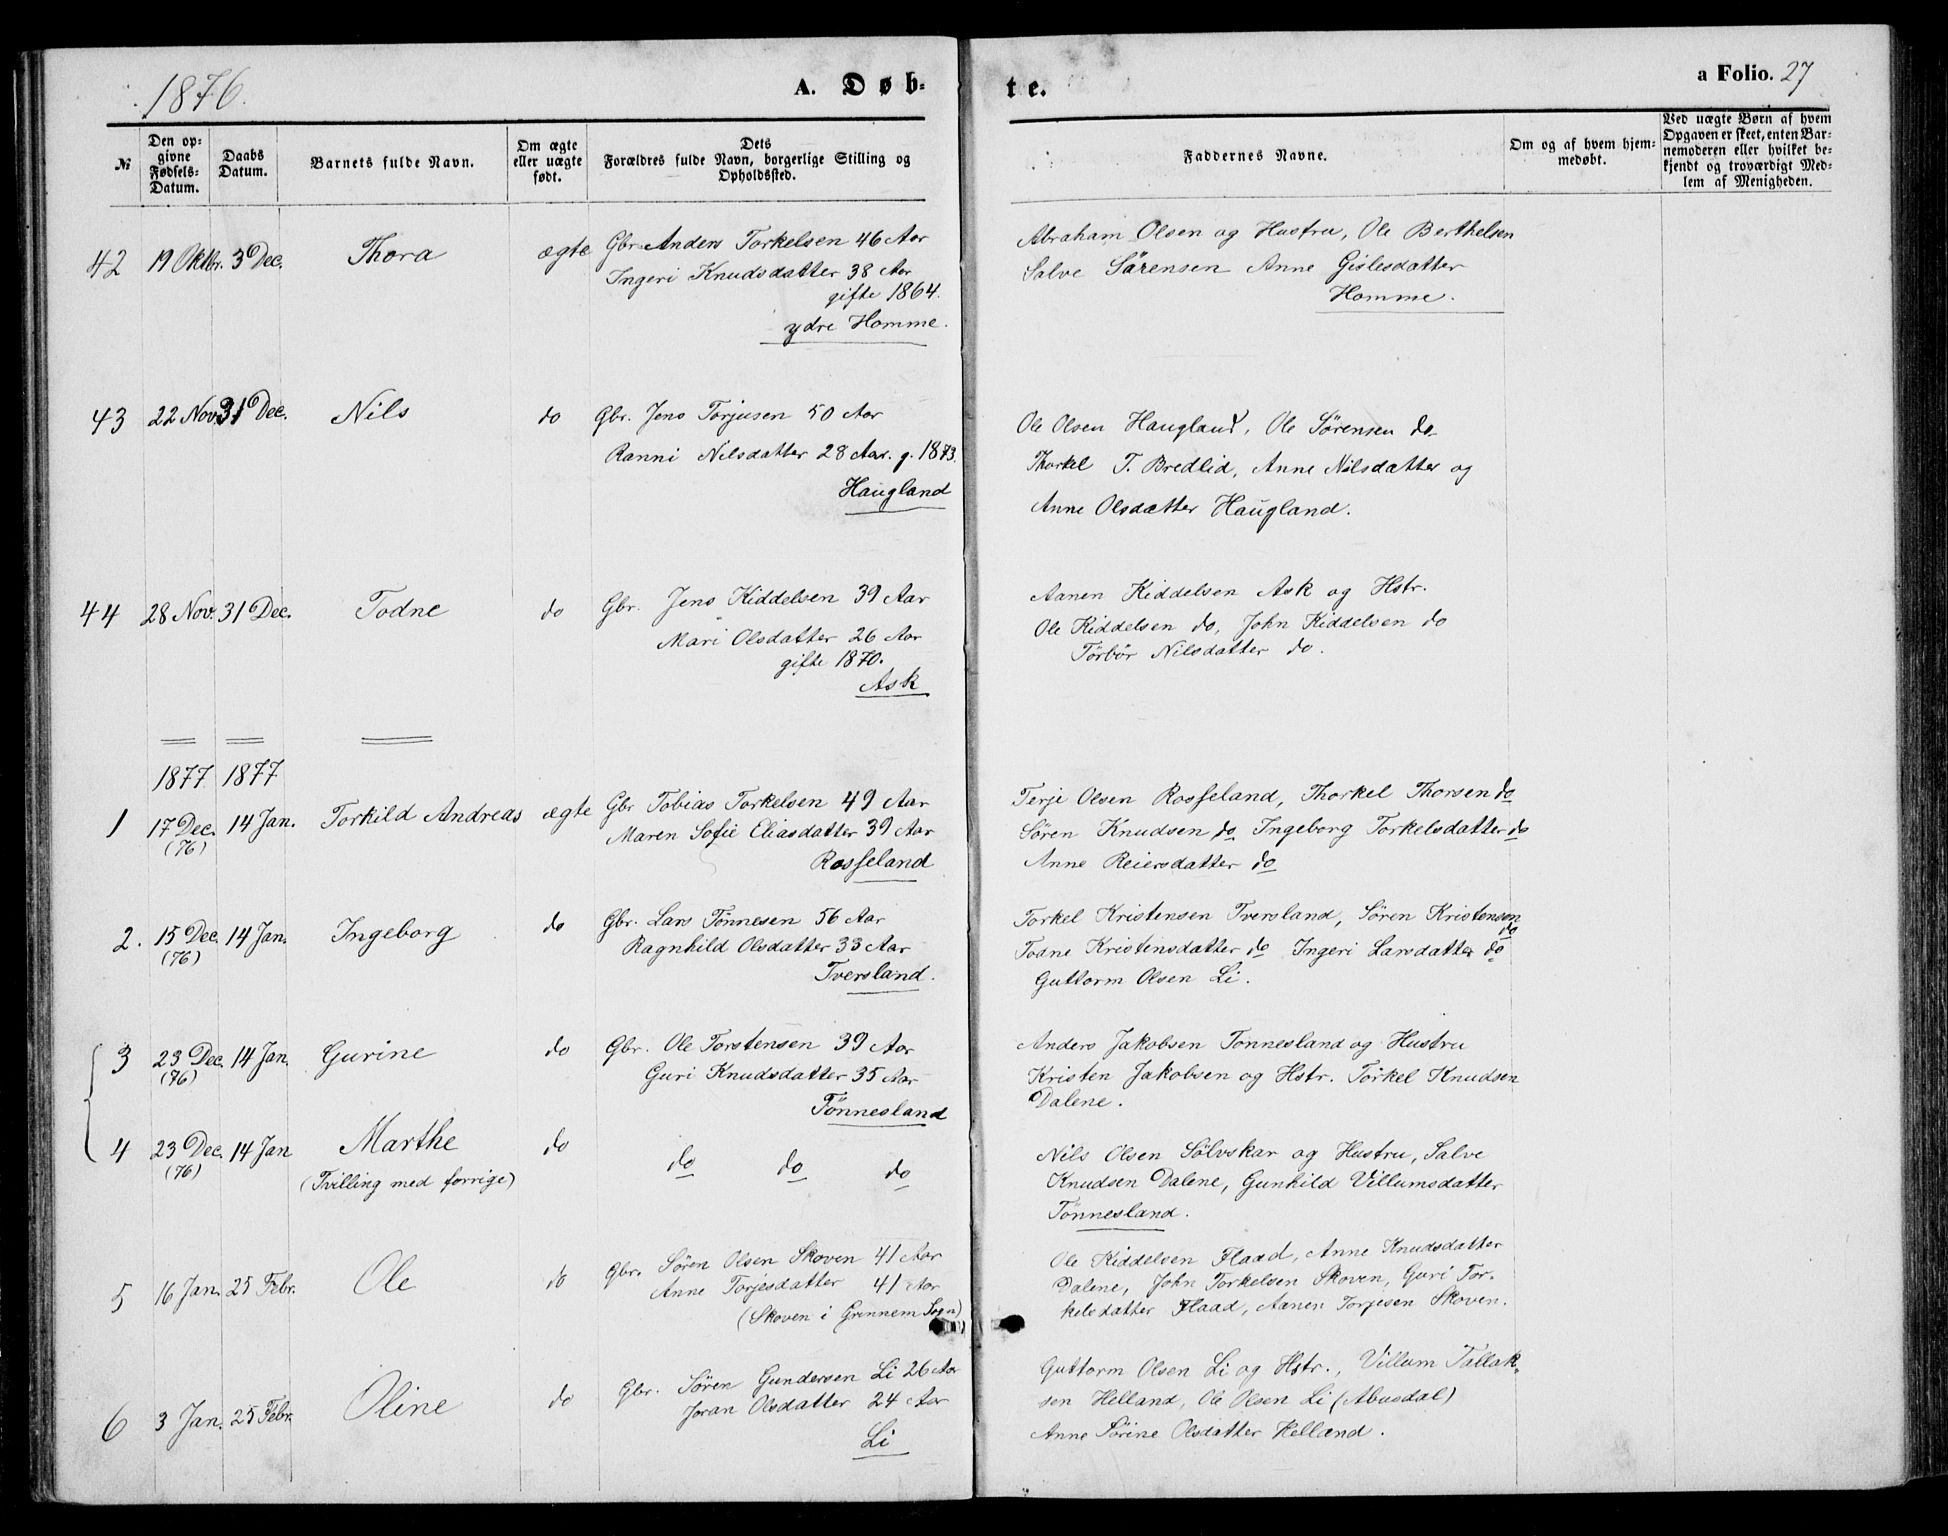 1876.
A. Døb-
te.
a Folio. 27
№
Den op-
givne
Fødsels-
Datum.
Daabs
Datum.
Barnets fulde Navn.
Om ægte
eller uægte
født.
Dets
Forældres fulde Navn, borgerlige Stilling og
Opholdssted.
Faddernes Navne.
Om og af hvem hjem-
medøbt.
Ved uægte Børn af hvem
Opgaven er skeet, enten Bar-
nemoderen eller hvilket be-
kjendt og troværdigt Med-
lem af Menigheden.
42 19 Oktbr. 3 Dec. Thora ægte Gbr. Anders Torkelsen 46 Aar
Ingeri Knudsdatter 38 Aar
gifte 1864.
ydre Homme.
Abraham Olsen og Hustru, Ole Berthelsen
Salve Sørensen Anne Gislesdatter
Homme.
43 22 Nov. 31 Dec. Nils do Gbr. Jens Torjusen 50 Aar
Ranni Nilsdatter 28 Aar. g. 1873.
Haugland
Ole Olsen Haugland, Ole Sørensen do
Thorkel T. Bredlid, Anne Nilsdatter og
Anne Olsdatter Haugland.
44 28 Nov. 31 Dec. Todne do Gbr. Jens Kiddelsen 39 Aar
Mari Olsdatter 26 Aar
gifte 1870.
Ask
Aanen Kiddelsen Ask og Hstr.
Ole Kiddelsen do, John Kiddelsen do
Torbør Nilsdatter do.
1877 1877
1 17 Dec. 14 Jan. Torkild Andreas ægte Gbr Tobias Torkelsen 49 Aar
(76) Maren Sofie Eliasdatter 39 Aar
Rosseland
Terje Olsen Rosseland, Thorkel Thorsen do
Søren Knudsen do Ingeborg Torkelsdatter do
Anne Reiersdatter do
2. 15 Dec. 14 Jan. Ingeborg do Gbr. Lars Tønnesen 56 Aar
(76) Ragnhild Olsdatter 33 Aar
Tversland.
Torkel Kristensen Tversland, Søren Kristensen
do
Toane Kristensdatter do Ingeri Larsdatter do
Guttorm Olsen Li.
3 23 Dec. 14 Jan. Gurine do Gbr. Ole Torstensen 39 Aar
(76) Guri Knudsdatter 35 Aar
Tønnesland
Anders Jakobsen Tønnesland og Hustru
Kristen Jakobsen og Hstr. Torkel Knudsen
Dalene.
4 23 Dec. 14 Jan Marthe do do do do
(76) (Tvilling med forrige)
Nils Olsen Sølvskar og Hustru, Salve
Knudsen Dalene, Gunhild Villumsdatter
Tønnesland.
5 16 Jan. 25 Febr. Ole do Gbr. Søren Olsen Skoven 41 Aar
Anne Torjesdatter 41 Aar
(Skoven i Grinnem Sogn)
Ole Kiddelsen Flaad, Anne Knudsdatter
Dalene, John Torkelsen Skoven, Guri Tor-
kelsdatter Flaad, Aanen Torjesen Skoven.
6 3 Jan. 25 Febr. Oline do Gbr. Søren Gundersen Li 26 Aar
Joran Olsdatter 24 Aar
Li
Guttorm Olsen Li og Hstr., Villum Tallak-
sen Helland, Ole Olsen Li (Abusdal)
Anne Sørine Olsdatter Helland.